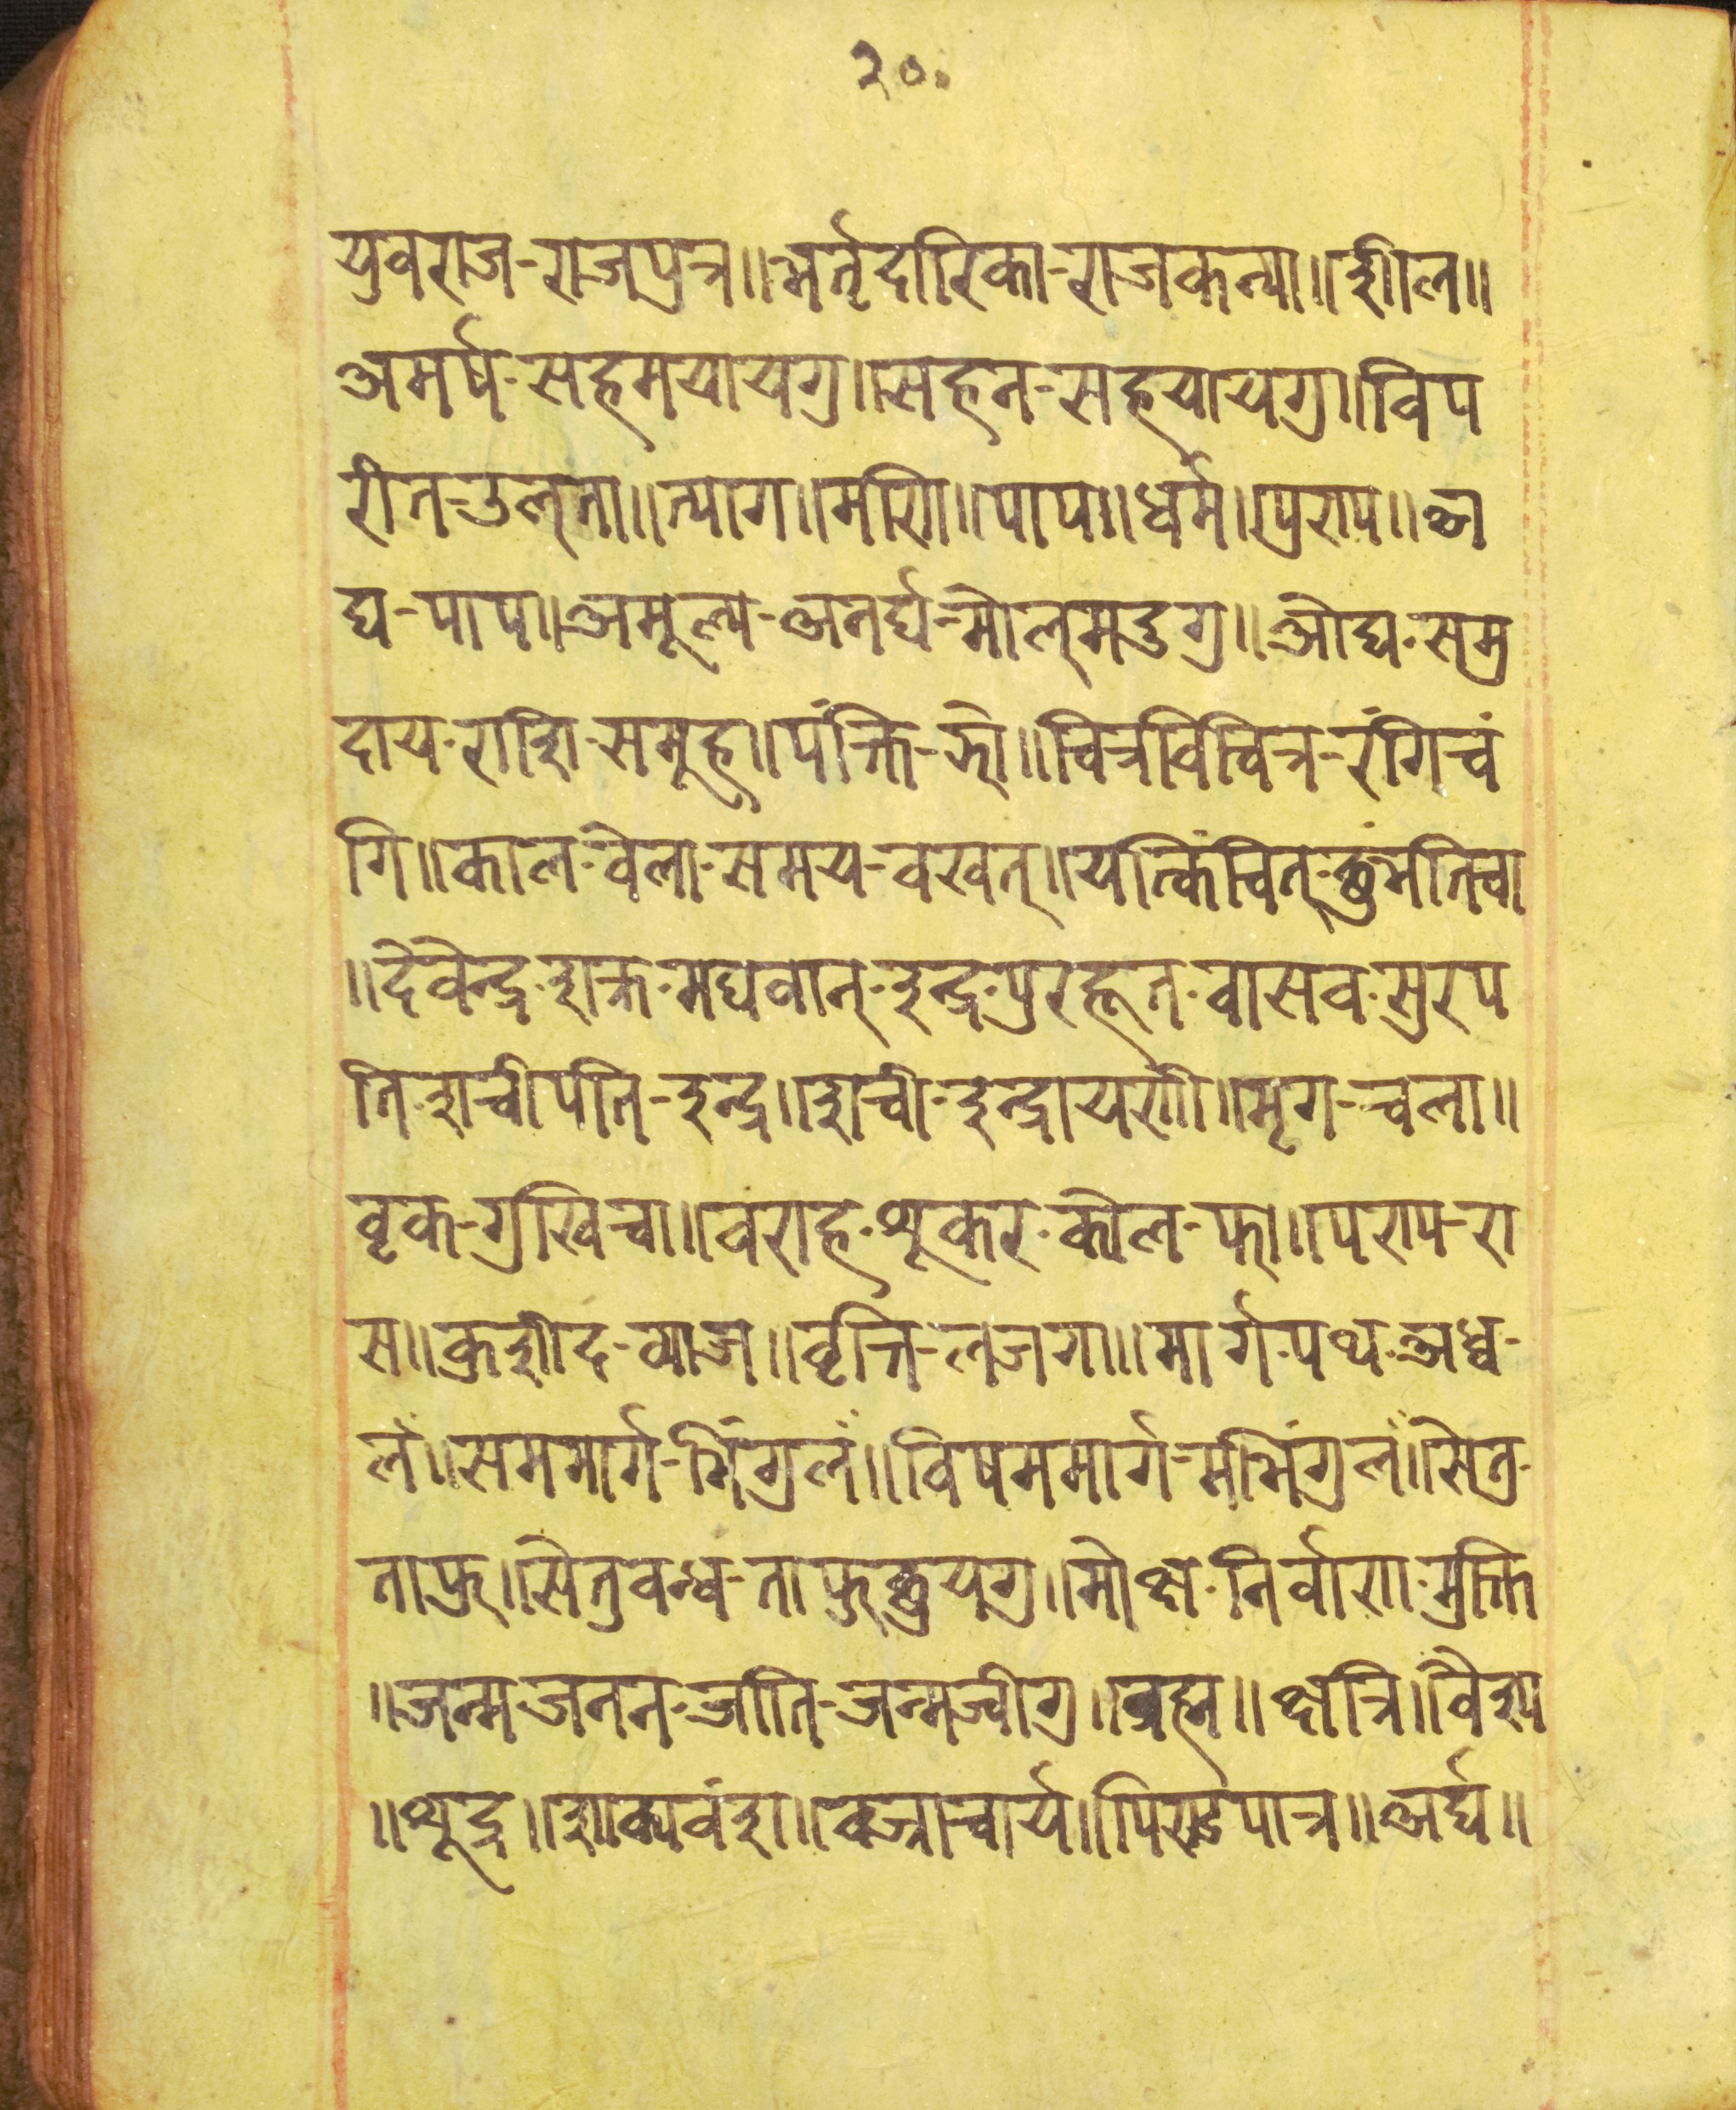 २०
युवराज-राजपुत्र॥भर्तृदारिका-राजकन्या॥शील॥
अमर्ष-सहमयायगु॥सहन-सहयायगु॥विप
रीत-उल्ता॥त्याग॥मणि॥पाप॥धर्म॥पुण्य॥अ
घ-पाप॥अमूल्य-अनर्घ-मोल्मडुगु॥ओघ-समु
दाय-राशि-समूह॥पंक्ति-झो॥चित्रविचित्र-रंगिचं
गि॥काल-वेला-समय-वखत्॥यत्किंचित्-छुंभतिचा
॥देवेन्द्र-शक्र-मघवान्-इन्द्र-पुरहूत-वासव-सुरप
ति-शचीपति-इन्द्र॥शची-इन्द्रायणी॥मृग-चला॥
वृक-गुखिचा॥वराह-शूकर-कोल-फा॥पराप-रा
स॥कुशीद-व्याज॥वृत्ति-लजगा॥मार्ग-पथ-अध्व-
लं॥सममार्ग-भिंगुलं॥विषममार्ग-मभिंगुलं॥सेतु-
ताफु॥सेतुबन्ध-ताफुछुयगु॥मोक्ष-निर्वाण-मुक्ति
॥जन्म-जनन-जाति-जन्मज्वीगु॥ब्रह्म॥क्षत्रि॥वैश्य
॥शूद्र॥शाक्यवंश॥वज्राचार्य॥पिण्डपात्र॥अर्घ॥